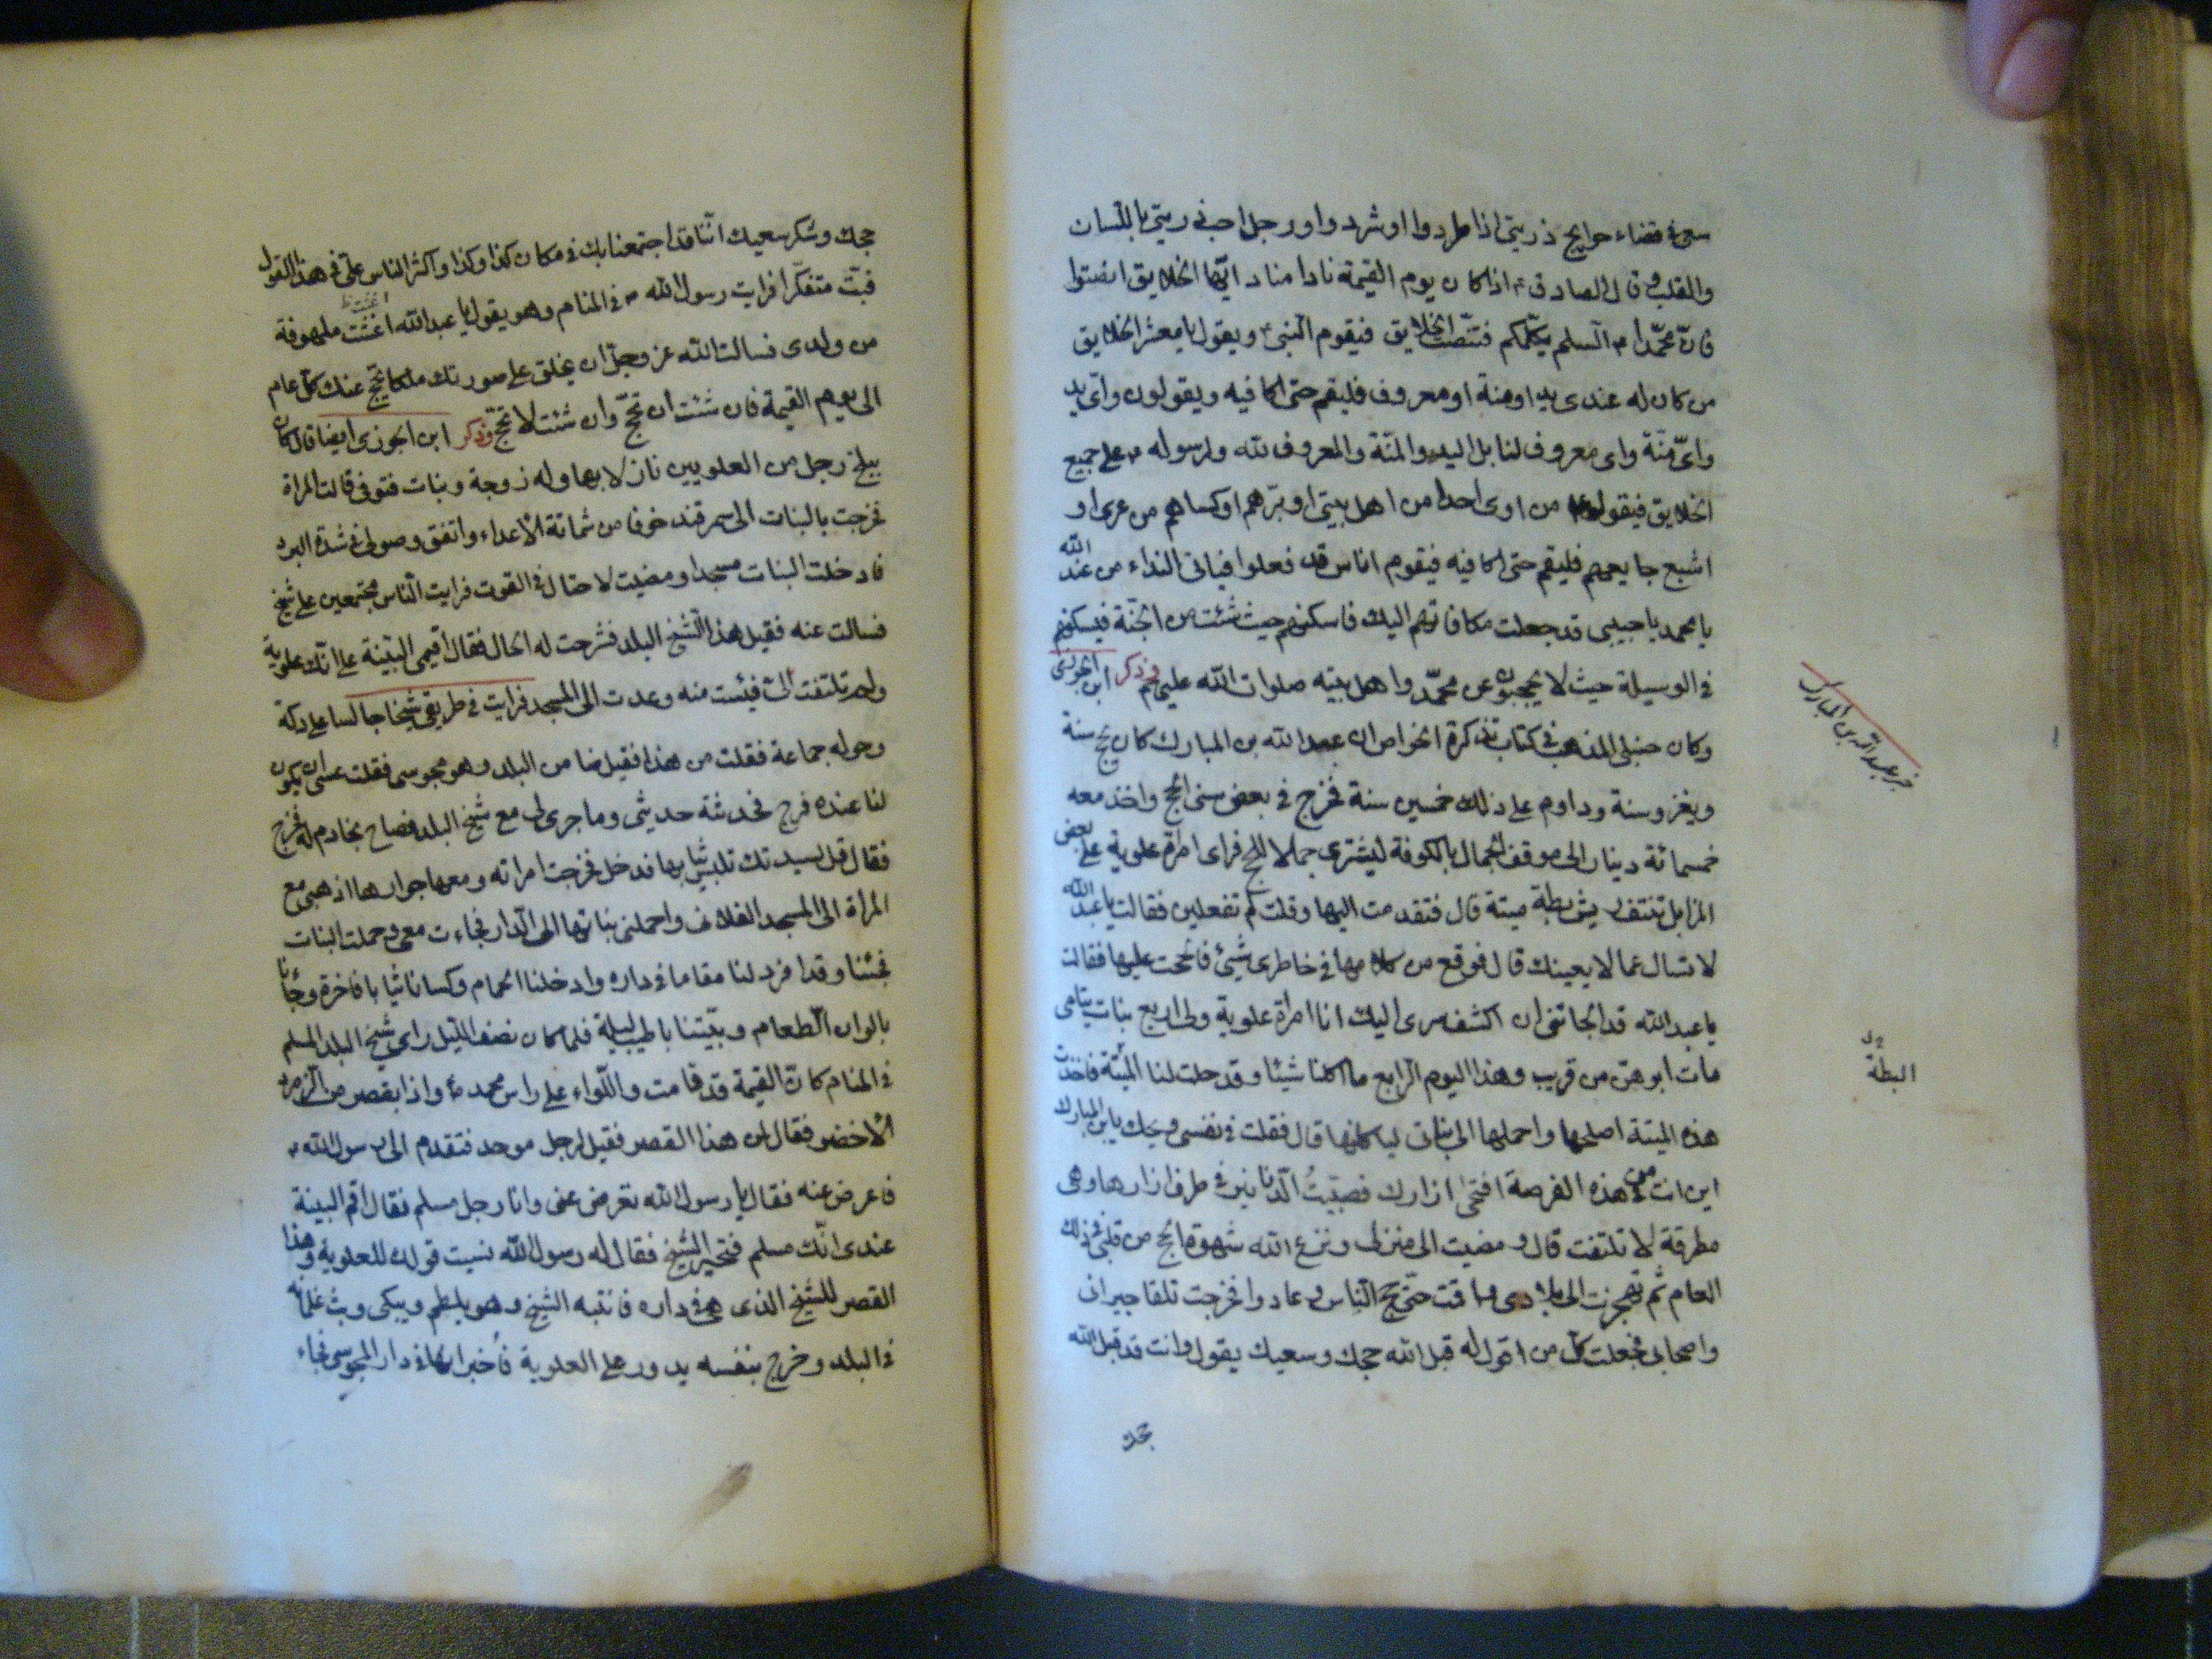 سعى في قضاء حوايج ذريتي اذا طردوا او شردوا ورجل احب ذريتي باللسان
والقلب وقال الصادق ع اذا كان يوم القيمة نادا مناد ايها الخلايق انصتوا
فان محمدا م السلم يكلمكم فتنصت الخلايق فيقوم النبي ص ويقول يا معشر الخلايق
من كان له عندي يد او منة او معروف فليقم حتى اكافيه ويقولون واي يد
واي منة واي معروف لنا بل اليد والمنة والمعروف لله ولرسوله م على جميع
الخلايق فيقول من اوى احدا من اهل بيتي او برهم او كساهم من عرى او
اشبع جايعهم فليقم حتى اكافيه فيقوم اناس قد فعلوا فياتي النداء من عند الله
يا محمد يا حبيبي قد جعلت مكافاتهم اليك فاسكنهم حيث شئت من الجنة فيسكنهم
في الوسيلة حيث لا يحجبون عن محمد واهل بيته صلوات الله عليهم وذكر ابن الجوزي
وكان حنبلي المذهب في كتاب تذكرة الخواص ان عبد الله بن المبارك كان يحج سنة
ويغزو سنة وداوم على ذلك خمسين سنة فخرج في بعض سني الحج واخذ معه
خمسمائة دينار الى موقف الجمال بالكوفة ليشتري جملا للحج فراى امراة علوية على بعض
المزابل تنتف ريش بطة ميتة قال فتقدمت اليها وقلت لم تفعلين فقالت يا عبد الله
لا تسال عما لا يعينك قال فوقع من كلامها في خاطري شيئ فالححت عليها فقالت
يا عبد الله قد الجاتني ان اكشف سرى اليك انا امراة علوية ولي اربع بنات يتامى
مات ابوهن من قريب وهذا اليوم الرابع ما اكلنا شيئا وقد حلت لنا الميتة فاخذت
هذه الميتة اصلحها واحملها الى بناتي لياكلنها قال فقلت في نفسي ويحك يابن المبارك
اين انت من هذه الفرصة افتحي ازارك فصببت الدنانير في طرف ازارها وهي
مطرقة لا تلتفت قال ومضيت الى منزلي ونزع الله شهوة الحج من قلبي في ذلك
العام ثم تجهزت الى بلادي واقمت حتى حج الناس وعادوا فخرجت تلقا جيراني
واصحابي فجعلت كل من اقول له قبل الله حجك وسعيك يقول وانت قد قبل الله
حجك
خبر عبد الله بن المبارك
البطة
حجك وشكر سعيك اننا قد اجتمعنا بك في مكان كذا وكذا واكثر الناس علي في هذا القول
فبت متفكرا فرايت رسول الله م في المنام وهو يقول يا عبد الله اغثت ملهوفة
من ولدي فسالت الله عز وجل ان يخلق على صورتك ملكا يحج عنك كل عام
الى يوم القيمة فان شئت ان تحج وان شئت لا تحج وذكر ابن الجوزي ايضا قال كان
ببلخ رجل من العلويين نازلا بها وله زوجة وبنات فتوفي قالت المراة
فخرجت بالبنات الى سمرقند خوفا من شماتة الاعداء واتفق وصولي في شدة البرد
فادخلت البنات مسجدا ومضيت لاحتال في القوت فرايت الناس مجتمعين على شيخ
فسالت عنه فقيل هذا الشيخ البلد فشرحت له الحال فقال اقيمي البينة على انك علوية
ولم تلتفت الي فيئست منه وعدت الى المسجد فرايت في طريقي شيخا جالسا على دكة
وحوله جماعة فقلت من هذا فقيل ضامن البلد وهو مجوسى فقلت عسى ان يكون
لنا عنده فرج فحدثته حديثي وما جرى لي مع شيخ البلد فصاح بخادم له فخرج
فقال قل لسيدتك تلبس ثيابها فدخل فخرجت امراته ومعها جوارها اذهبي مع
المراة الى المسجد الفلاني واحملي بناتها الى الدار فجاءت معي وحملت البنات
فجئنا وقد افرد لنا مقاما في داره وادخلنا الحمام وكسانا ثيابا فاخرة وجائنا
بالوان الطعام وبيتنا باطيب ليلة فلما كان نصف الليل راى شيخ البلد المسلم
في المنام كان القيمة قد قامت واللواء على راس محمد ص واذا بقصر من الزمرد
الاخضر فقال لمن هذا القصر فقيل لرجل موحد فتقدم الى رسول الله م
فاعرض عنه فقال يا رسول الله تعرض عني وانا رجل مسلم فقال اقم البينة
عندي انك مسلم فتحير الشيخ فقال له رسول الله نسيت قولك للعلوية وهذا
القصر للشيخ الذي هي في داره فانتبه الشيخ وهو يلطم ويبكي وبث غلمانه
في البلد وخرج بنفسه يدور على العلوية فاخبر انها في دار المجوسي فجاء